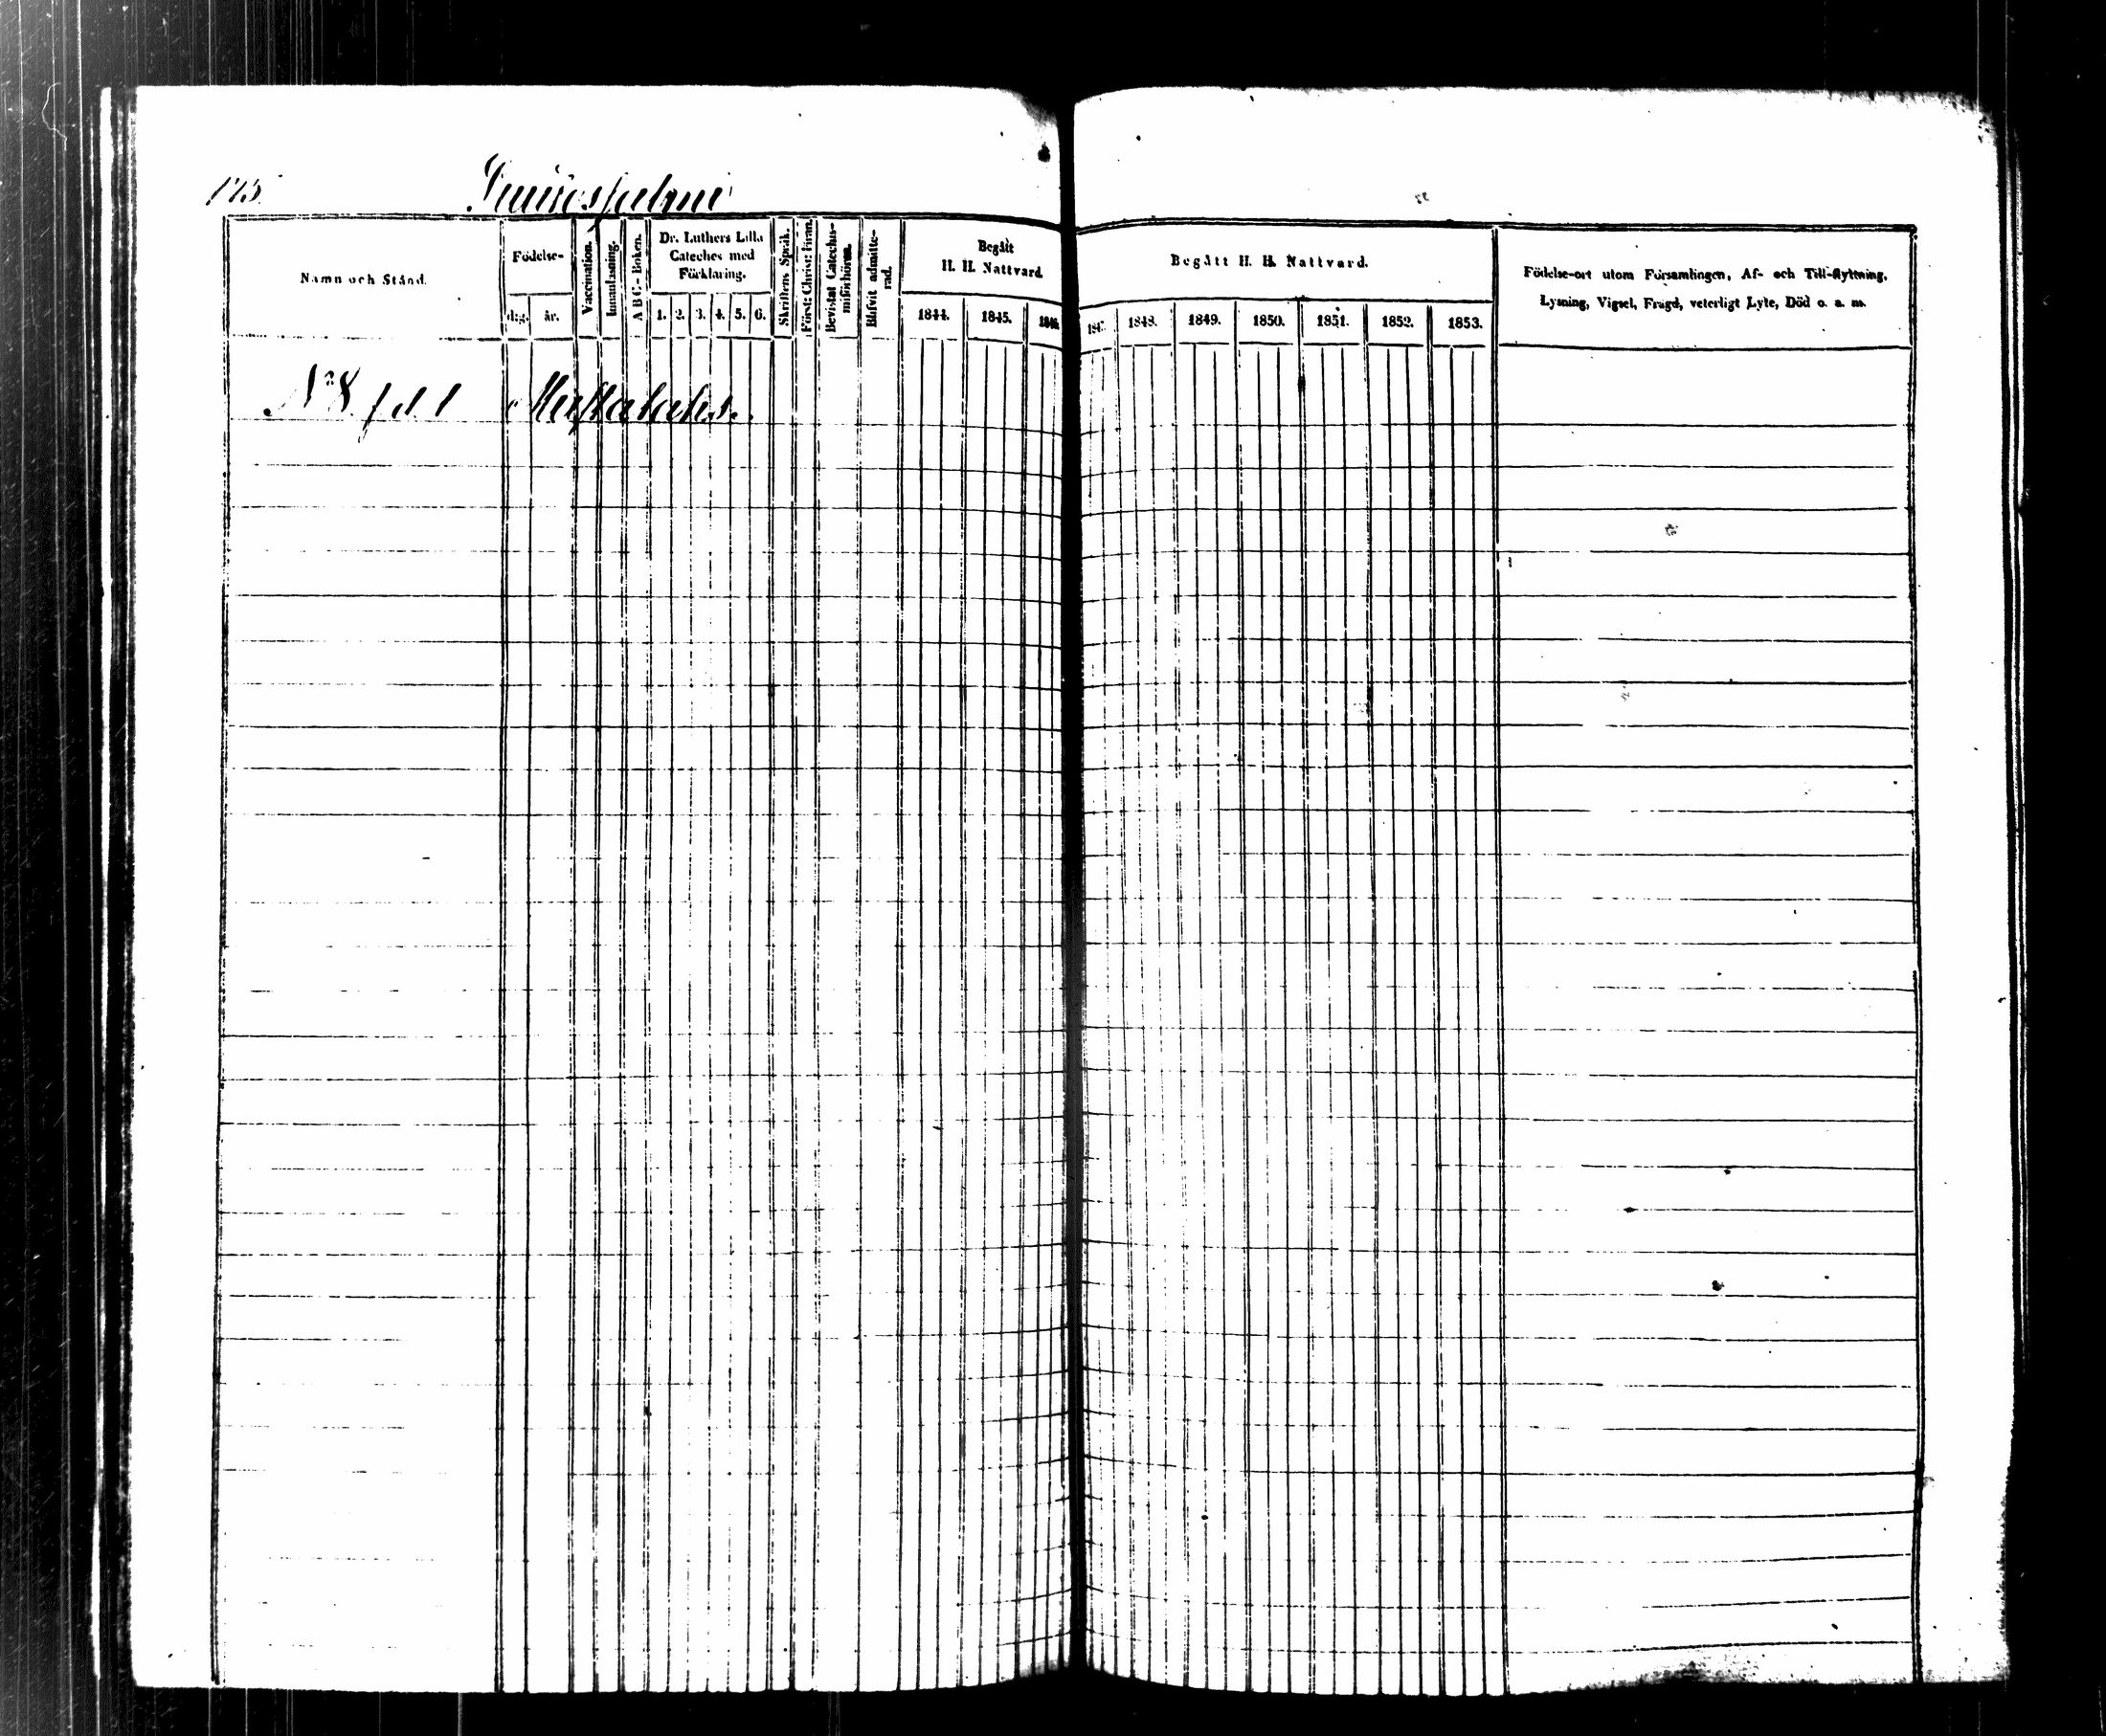 175.
Namn och Stånd.
Födelse-
dag.
år.
Vaccination.
Innanläsning.
A B C - Boken.
Dr. Luthers Lilla
Cateches med
Förklaring.
1. 2. 3. 4. 5. 6.
Skriftens Språk.
Först: Christ: Firan.
Bevistat Catechis-
miförhören.
Blifvit admitte-
rad.
Begått
H. H. Nattvard.
1844. 1845. 1846.
Begått H. H. Nattvard.
1847. 1848. 1849. 1850. 1851. 1852. 1853.
Födelse-ort utom Församlingen, Af- och Till-flyttning,
Lysning, Vigsel, Frägd, veterligt Lyte, Död o. a. m.
No 8